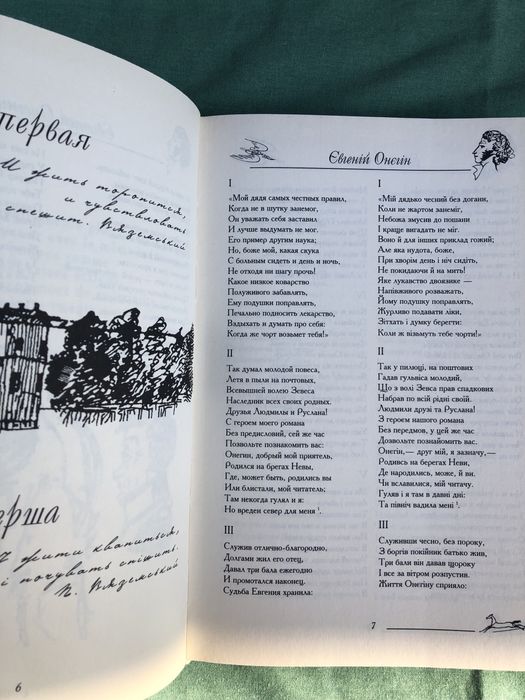 первая
И жить торопится,
и чувствовать
спешит. Вяземский
ерша
І жити квапиться,
і почувать спішить.
П. Вяземський
6
Євгеній Онєгін
I
«Мой дядя самых честных правил,
Когда не в шутку занемог,
Он уважать себя заставил
И лучше выдумать не мог.
Его пример другим наука;
Но, боже мой, какая скука
С больным сидеть и день и ночь,
Не отходя ни шагу прочь!
Какое низкое коварство
Полуживого забавлять,
Ему подушки поправлять,
Печально подносить лекарство,
Вздыхать и думать про себя:
Когда же чорт возьмет тебя!»
II
Так думал молодой повеса,
Летя в пыли на почтовых,
Всевышней волею Зевеса
Наследник всех своих родных.
Друзья Людмилы и Руслана!
С героем моего романа
Без предисловий, сей же час
Позвольте познакомить вас:
Онегин, добрый мой приятель,
Родился на брегах Невы,
Где, может быть, родились вы
Или блистали, мой читатель;
Там некогда гулял и я:
Но вреден север для меня ¹.
III
Служив отлично-благородно,
Долгами жил его отец,
Давал три бала ежегодно
И промотался наконец.
Судьба Евгения хранила:
I
«Мій дядько чесний без догани,
Коли не жартом занеміг,
Небожа змусив до пошани
І краще вигадать не міг.
Воно й для інших приклад гожий;
Але яка нудота, боже,
При хворім день і ніч сидіть,
Не покидаючи й на мить!
Яке лукавство двоязике —
Напівживого розважать,
Йому подушку поправлять,
Журливо подавати ліки,
Зітхать і думку берегти:
Коли ж візьмуть тебе чорти!»
II
Так у пилюці, на поштових
Гадав гульвіса молодий,
Що з волі Зевса прав спадкових
Набрав по всій рідні своїй.
Людмили друзі та Руслана!
З героєм нашого романа
Без передмов, у цей же час
Дозвольте познайомить вас:
Онєгін,— друг мій, я зазначу,—
Родивсь на берегах Неви,
Де народились, може, й ви.
Чи вславилися, мій читачу.
Гуляв і я там в давні дні:
Та північ вадила мені ¹.
III
Служивши чесно, без пороку,
З боргів покійник батько жив,
Три бали він давав щороку
І все за вітром розпустив.
Життя Онєгіну сприяло:
7